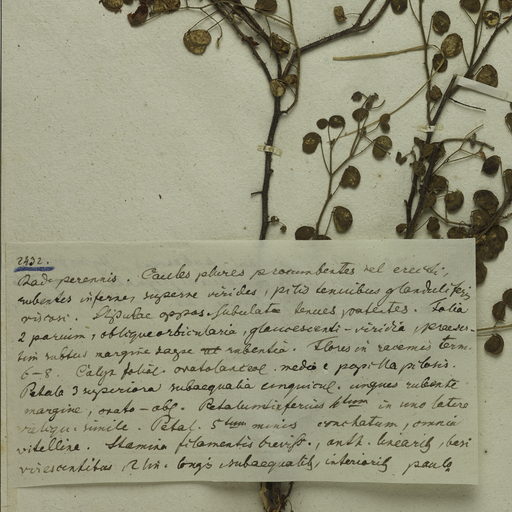 2432.
Rad. perennis. Caules plures procumbentes vel erecti,
rubentes inferne, superne virides, pilis tenuibus glanduliferis
viscosi. Stipulae oppos. subulatae tenues, patentes. Folia
2 parium, oblique orbicularia, glaucescenti-viridia, praeser-
tim subtus margine saepe rubentia. Flores in racemis term.
6-8. Calyc. foliol. ovato lanceol. medio e papilla pilosis.
Petala 3 superiora subaequalia unguicul. ungues rubente
margine, ovato-obl. Petalum inferius in uno latere
reliqu. simile. Petal. 5tum minus conchatum, omnia
vitellina. Stamina filamentis breviss., anth. linearib, basi
virescentibus, 2 lin. longis subaequalib, interiorib paulo